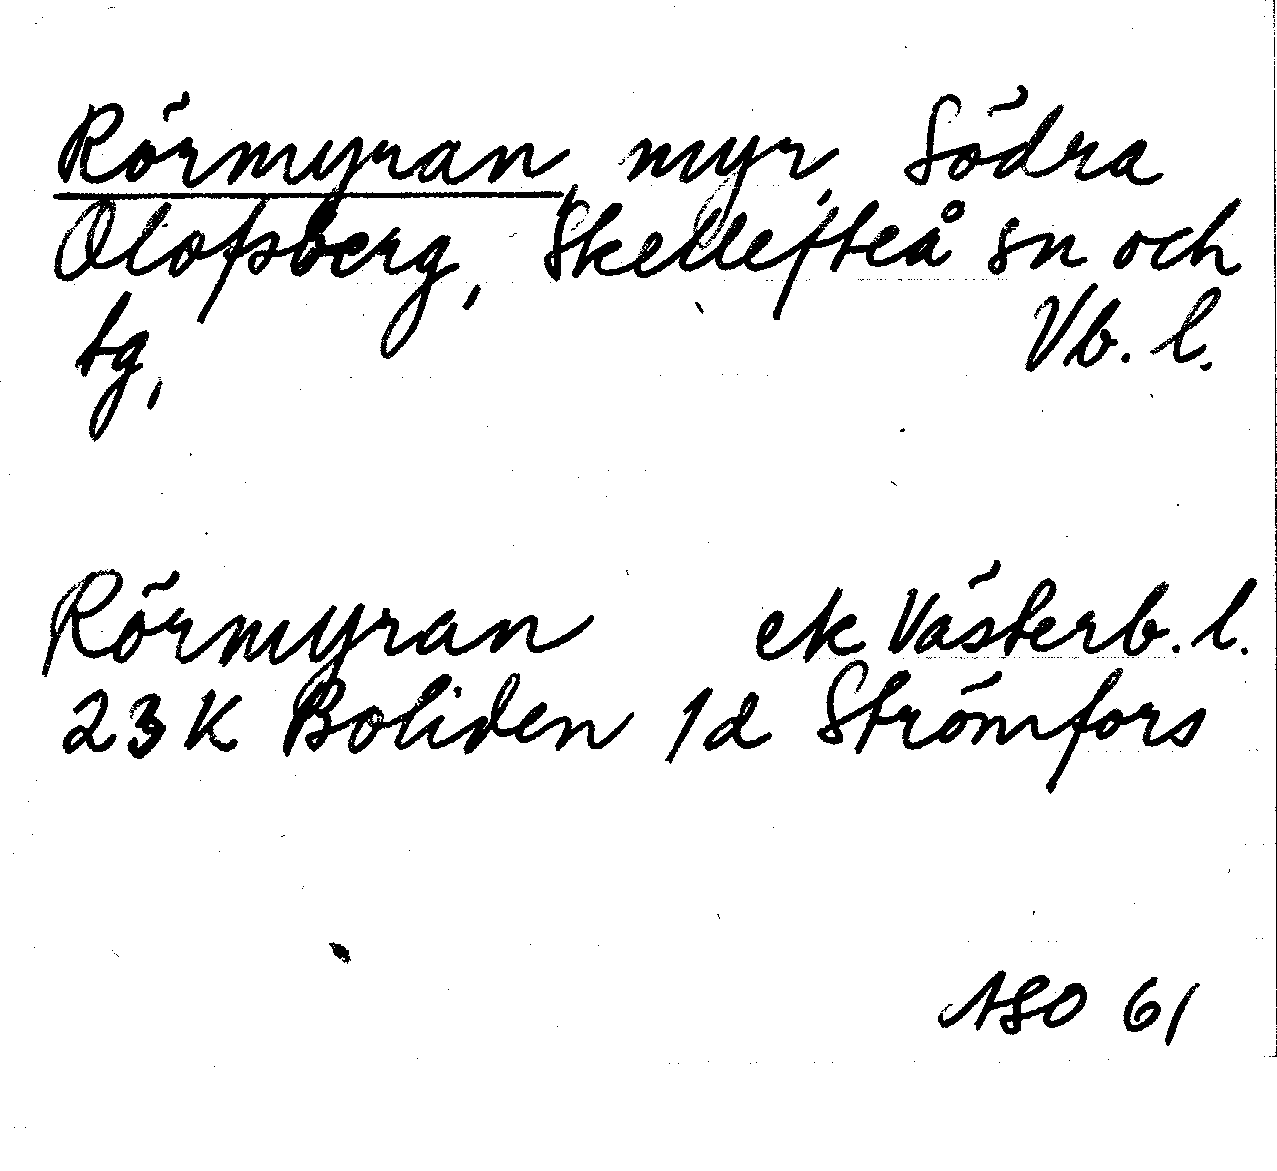 Rörmyran, myr, Södra
Olofsberg, Skellefteå sn och
tg, Vb. l.
Rörmyran ek Västerb. l.
23 K Boliden 1d Strömfors
ASO 61